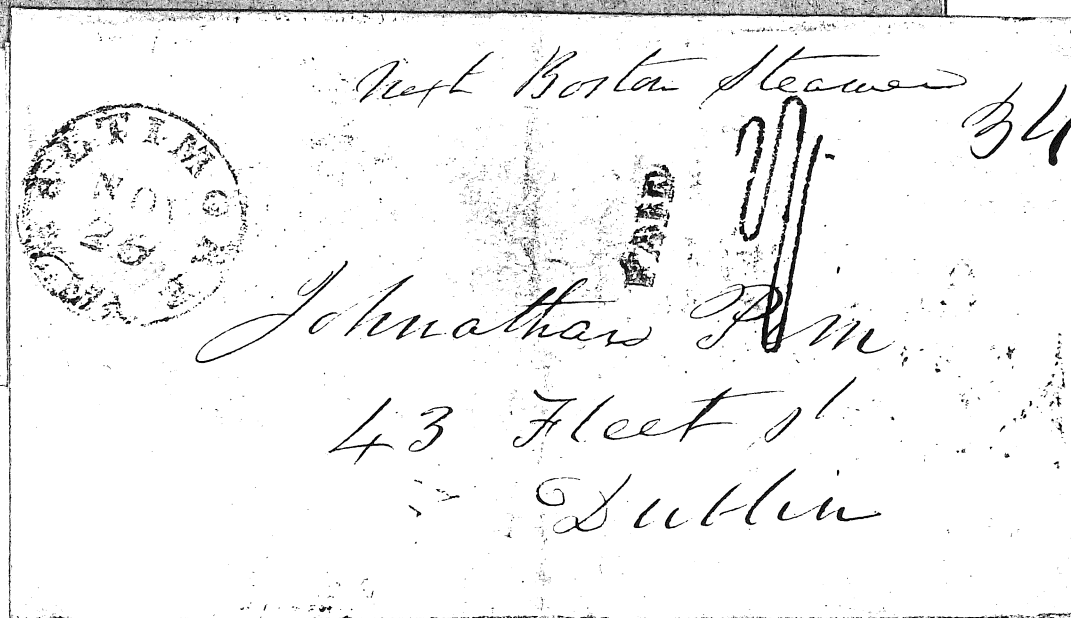 Next Boston Steamer
34
BALTIMORE Md
NOV
26
PAID
Johnathan Pim
43 Fleet st
Dublin